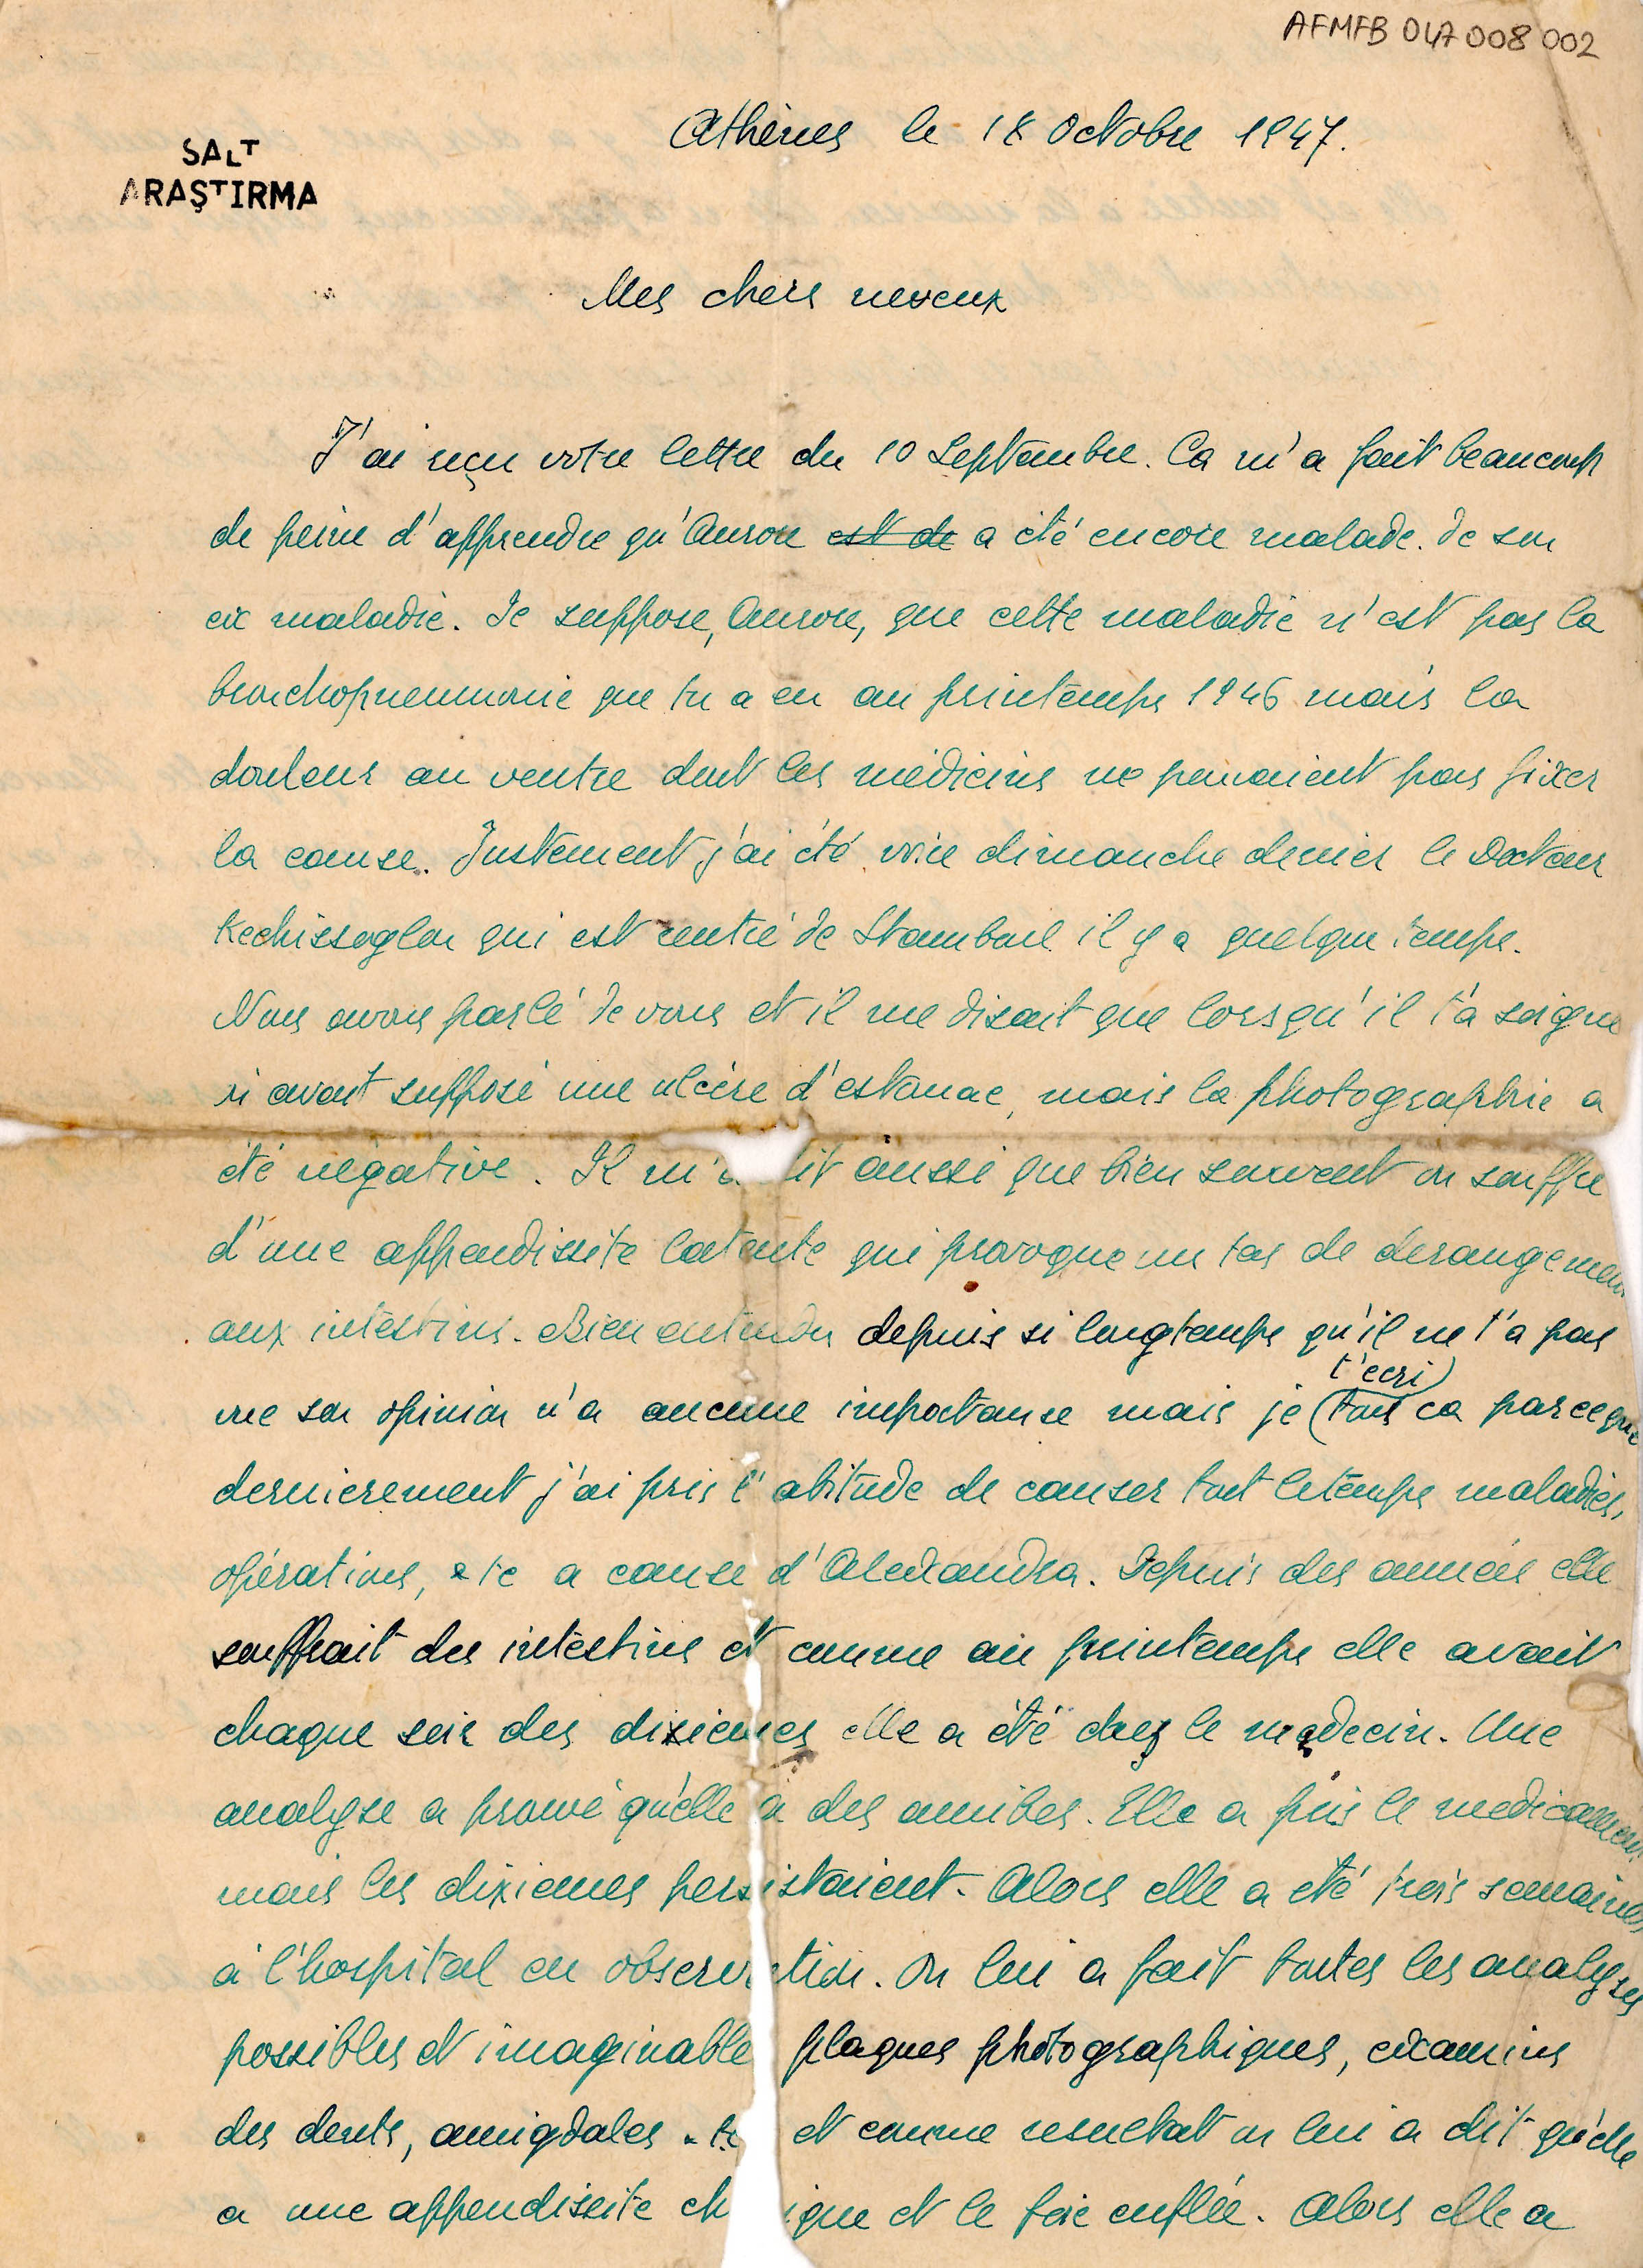 AFMFB 047 008 002
SALT
ARAŞTIRMA
Athènes le 18 Octobre 1947.
Mes chers neveux
J'ai reçu votre lettre du 10 Septembre. Ca m'a fait beaucoup
de peine d'apprendre qu'Aurore est de a été encore malade. de son
ex maladie. Je suppose, Aurore, que cette maladie n'est pas la
bronchopneumonie que tu a eu au printemps 1946 mais la
douleur au ventre dont les médicins ne pouvaient pas fixer
la cause. Justement j'ai été voir dimanche dernier le Docteur
Kechissoglou qui est rentré de Stamboul il y a quelque temps.
Nous avons parlé de vous et il me disait que lorsqu'il t'a soigné
avait supposé une ulcère d'estomac, mais la photographie a
été négative. Il m'a dit aussi que bien souvent on souffre
d'une appendissite latente qui provoque un tas de derangement
aux intestins. Bien entendu depuis si longtemps qu'il ne t'a pas
vue son opinion n'a aucune importanse mais je (t'ecri) tout ca parceque
dernierement j'ai pris l'abitude de causer tout le temps maladies,
opérations, etc a cause d'Alexandra. Depuis des années elle
souffrait des intestins et comme au printemps elle avait
chaque soir des dixiemes elle a été chez le medecin. Une
analyse a prouvé qu'elle a des amibes. Elle a pris le medicament
mais les dixiemes persistaient. Alors elle a été trois semaines
à l'hospital en observation. On lui a fait toutes les analyses
possibles et imaginable plaques photographiques, examins
des dents, amigdales et comme resultat on lui a dit qu'elle
a une appendissite ch ique et le foie enflée. Alors elle a